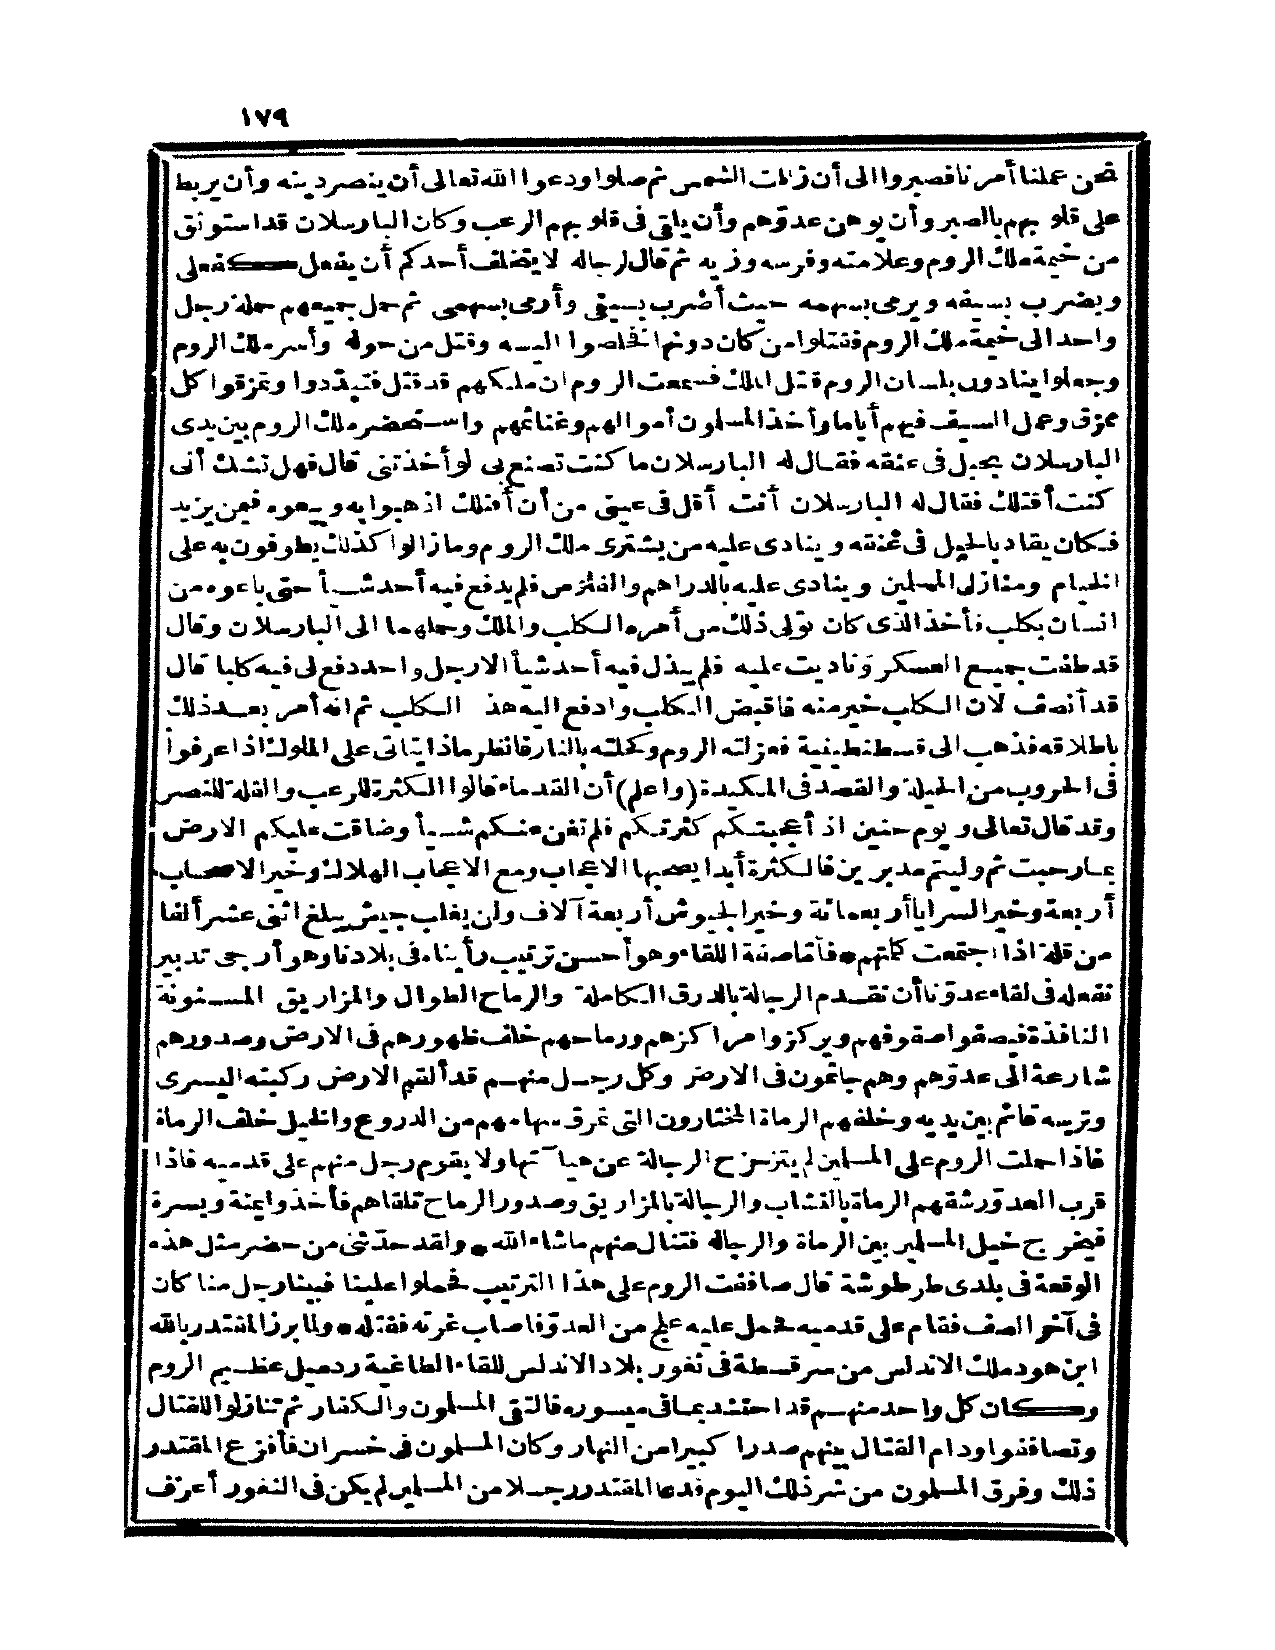 ١٧٩
نحن عملنا أمرنا فصبروا الى أن زالت الشمس ثم صلوا ودعوا الله تعالى أن ينصر دينه وأن يربط
على قلوبهم بالصبر وأن يوهن عدوّهم وأن يلقى فى قلوبهم الرعب وكان البارسلان قد استوثق
من خيمة ملك الروم وعلامته وفرسه وزيه ثم قال لرجاله لا يتخلف أحدكم أن يفعل كفعلى
ويضرب بسيفه ويرمى بسهمه حيث أضرب بسيفى وأرمى بسهمى ثم حمل جميعهم حملة رجل
واحد الى خيمة ملك الروم فقتلوا من كان دونها فخلصوا اليه وقتل من حوله وأسر ملك الروم
وجعلوا ينادون بلسان الروم قتل الملك فسمعت الروم ان ملكهم قد قتل فتبدّدوا وتمزقوا كل
ممزق وعمل السيف فيهم أياما وأخذ المسلمون أموالهم وغنائمهم واستحضر ملك الروم بين يدى
البارسلان بحبل فى عنقه فقال له البارسلان ما كنت تصنع بى لو أخذتنى قال فهل تشك أنى
كنت أقتلك فقال له البارسلان أنت أقل فى عينى من أن أقتلك اذهبوا به وبيعوه فيمن يزيد
فكان يقاد بالحبل فى عنقه وينادى عليه من يشترى ملك الروم وما زالوا كذلك يطوفون به على
الخيام ومنازل المسلمين وينادى عليه بالدراهم والفلوس فلم يدفع فيه أحد شيأ حتى باعوه من
انسان بكلب فأخذ الذى كان تولى ذلك من أمره الكلب والملك وحملهما الى البارسلان وقال
قد طفت جميع العسكر وناديت عليه فلم يبذل فيه أحد شيأ الا رجل واحد دفع لى فيه كلبا قال
قد أنصف لان الكلب خير منه فاقبض الكلب وادفع اليه هذا الكلب ثم انه أمر بعد ذلك
باطلاقه فذهب الى قسطنطينية فعزلته الروم وكحلته بالنار فانظر ماذا يتاتى على الملوك اذا عرفوا
فى الحروب من الحيلة والقصد فى المكيدة (واعلم) أن القدماء قالوا الكثرة للرعب والقلة للنصر
وقد قال تعالى ويوم حنين اذ أعجبتكم كثرتكم فلم تغن عنكم شيأ وضاقت عليكم الارض
بما رحبت ثم وليتم مدبرين فالكثرة أبدا يصحبها الاعجاب ومع الاعجاب الهلاك وخير الاصحاب
أربعة وخير السرايا أربعمائة وخير الجيوش أربعة آلاف ولن يغلب جيش يبلغ اثنى عشر ألفا
من قلة اذا اجتمعت كلمتهم * فأما صفة اللقاء وهو أحسن ترتيب رأيناه فى بلادنا وهو أرجى تدبير
نفعله فى لقاء عدوّنا أن نقدم الرجالة بالدرق الكاملة والرماح الطوال والمزاريق المسنونة
النافذة فيصفوا صفوفهم ويركزوا مراكزهم ورماحهم خلف ظهورهم فى الارض وصدورهم
شارعة الى عدوّهم وهم جاثمون فى الارض وكل رجل منهم قد ألقم الارض ركبته اليسرى
وترسه قائم بين يديه وخلفهم الرماة المختارون التى تمرق سهامهم من الدروع والخيل خلف الرماة
فاذا حملت الروم على المسلمين لم يتزحزح الرجالة عن هيآتها ولا يقوم رجل منهم على قدميه فاذا
قرب العدو رشقهم الرماة بالنشاب والرجالة بالمزاريق وصدور الرماح تلقاهم فأخذوا يمنة ويسرة
فيخرج خيل المسلمين بين الرماة والرجالة فتنال منهم ما شاء الله * ولقد حدّثنى من حضر مثل هذه
الوقعة فى بلدى طرطوشة قال صاففت الروم على هذا الترتيب فحملوا علينا فبينا رجل منا كان
فى آخر الصف فقام على قدميه فحمل عليه علج من العدوّ فاصاب غرته فقتله * ولما برز المقتدر بالله
ابن هود ملك الاندلس من سرقسطة فى ثغور بلاد الاندلس للقاء الطاغية ردميل عظيم الروم
وكان كل واحد منهم قد احتشد بما فى ميسوره فالتقى المسلمون والكفار ثم تنازلوا للقتال
وتصافوا ودام القتال بينهم صدرا كبيرا من النهار وكان المسلمون فى خسران فأفزع المقتدر
ذلك وفرق المسلمون من شر ذلك اليوم فدعا المقتدر رجلا من المسلمين لم يكن فى الثغور أعرف